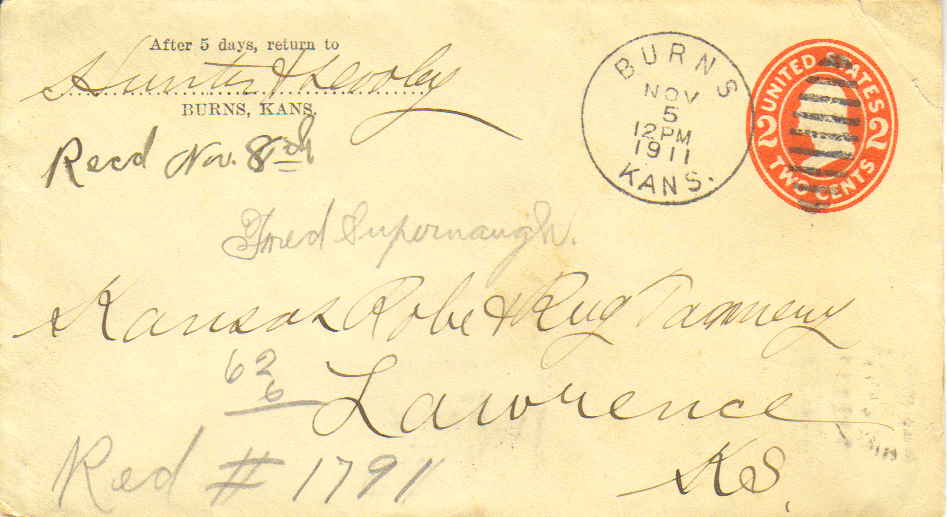 After 5 days, return to
Hunter &
BURNS, KANS.
BURNS
NOV
5
12 PM
1911
KANS.
UNITED STATES
2 2
TWO CENTS
Recd Nov. 8th
Fred Supernaugh.
Kansas Robe & Rug Tannery
62
6
Lawrence
KS.
Red # 1791